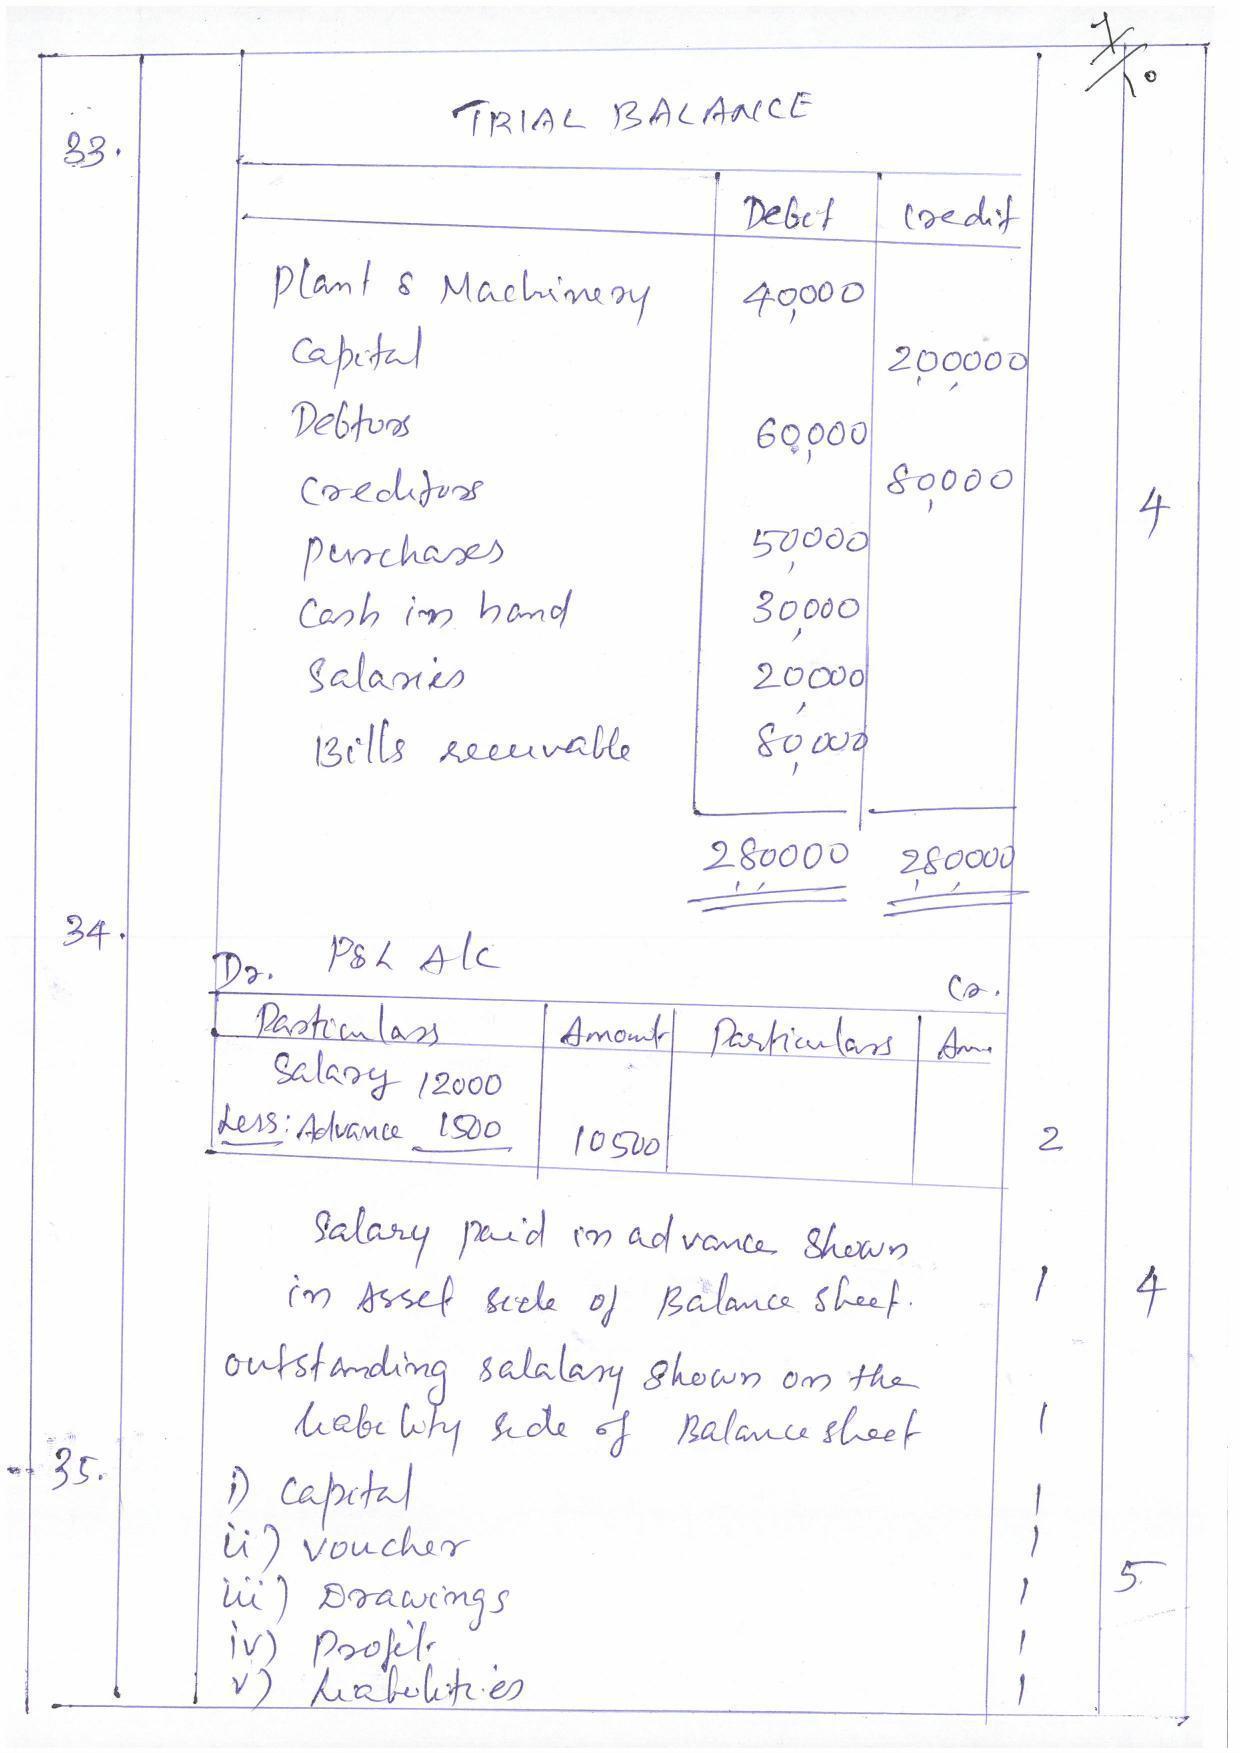 7/10
TRIAL BALANCE
33.
Debit Credit
Plant & Machinery 40,000
Capital 2,00,000
Debtors 60,000
Creditors 80,000
4
Purchases 50,000
Cash in hand 30,000
Salaries 20,000
Bills receivable 80,000
2,80,000 2,80,000
34.
Dr. P&L A/c Cr.
Particulars Amount Particulars Am.
Salary 12000
Less: Advance 1500 10500
2
Salary paid in advance shown
in Asset side of Balance sheet. 1 4
outstanding salalary shown on the
liability side of Balance sheet 1
35.
i) Capital 1
ii) voucher 1
iii) Drawings 1 5
iv) Profit 1
v) liabilities 1